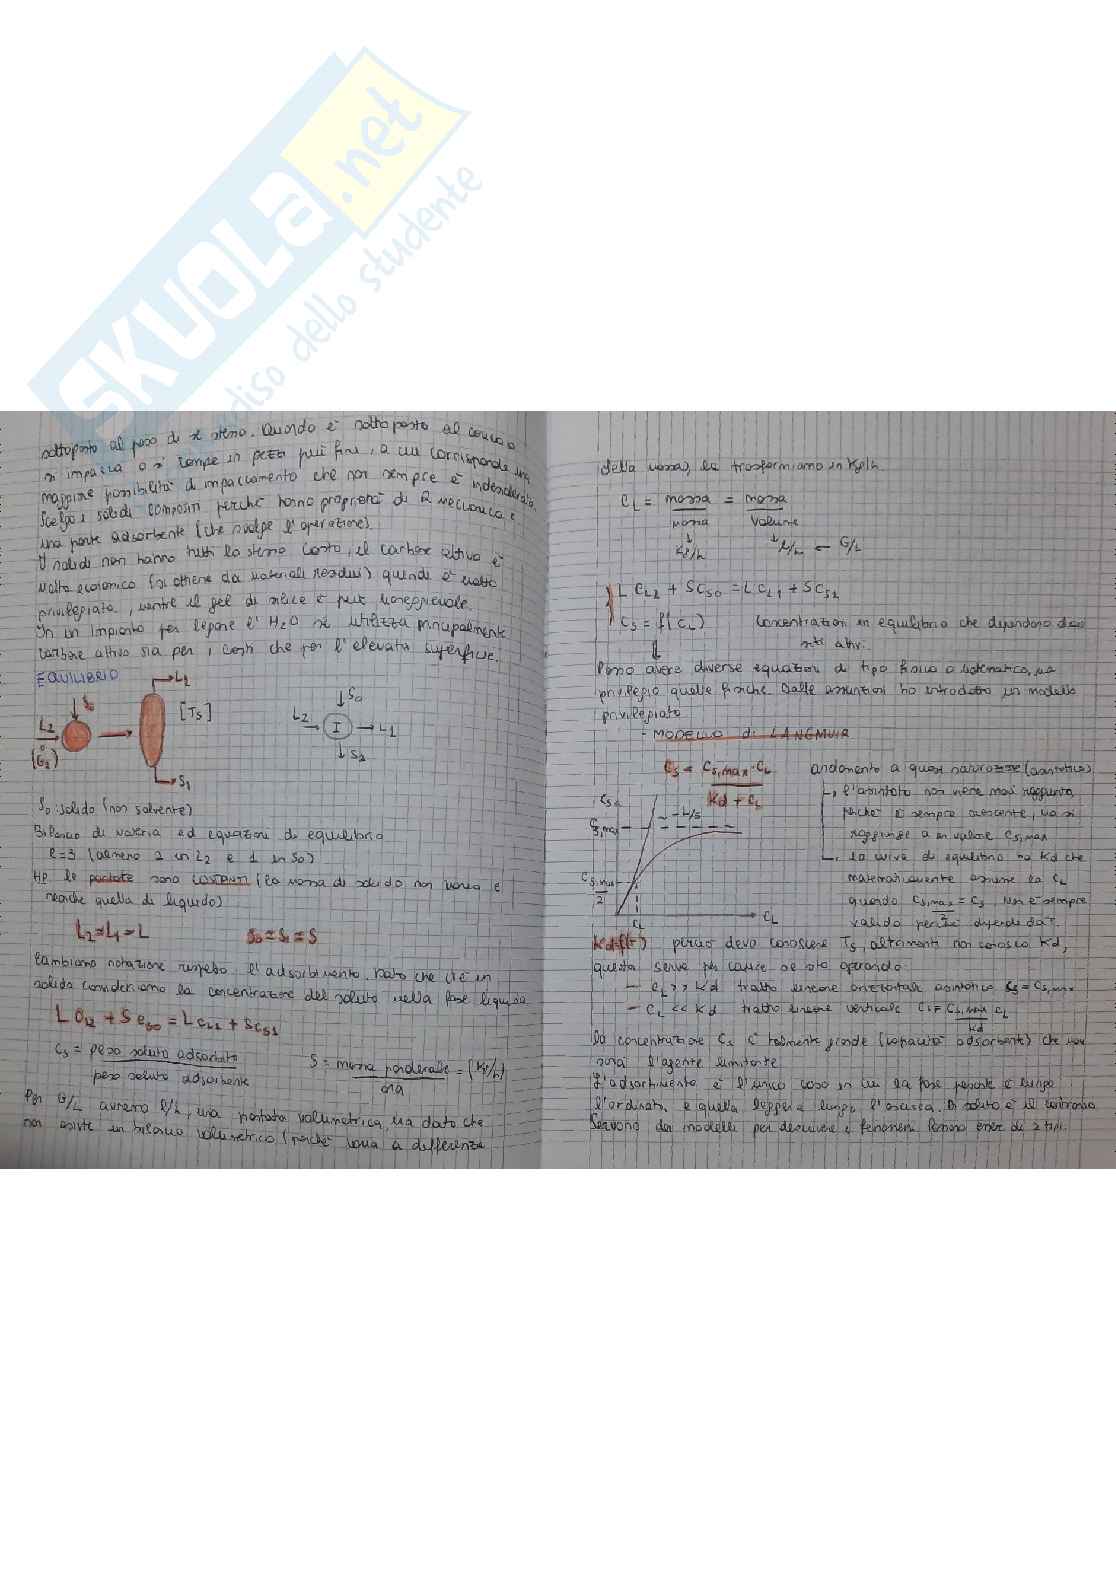 SKUOLA.net
paradiso dello studente
sottoposto al peso di se stesso. Quando è sottoposto al carico o
si impacca o si rompe in pezzi più fini, a cui corrisponde una
maggiore possibilità di impaccamento che non sempre è indesiderato.
Scelgo i solidi compositi perché hanno proprietà di R meccanica e
una parte adsorbente (che svolge l'operazione).
I solidi non hanno tutti lo stesso costo, il carbone attivo è
molto economico (si ottiene da materiali residui) quindi è molto
privilegiato, mentre il gel di silice è più
In un impianto per depurare l'H2O si utilizza principalmente
carbone attivo sia per i costi che per l'elevata superficie.
EQUILIBRIO
L2 S0 L2 (G2) [TS] S1
S0 L2 I L1 S2
S0: solido (non solvente)
Bilancio di materia ed equazioni di equilibrio
e=3 (almeno 2 in L2 e 1 in S0)
HP le portate sono COSTANTI (la massa di solido non varia e
neanche quella di liquido)
L2=L1=L S0=S1=S
Cambiamo notazione rispetto l'adsorbimento. Dato che c'è un
solido consideriamo la concentrazione del soluto nella fase liquida
L CL2 + S CS0 = L CL1 + S CS1
CS = peso soluto adsorbato / peso soluto adsorbente S = massa ponderale / ora = (kg/h)
Per G/L avremo l/h, una portata volumetrica, ma dato che
non esiste un bilancio volumetrico (perché varia a differenza
della massa) la trasformiamo in kg/h
CL = massa / massa = massa / volume
kg/h l/h — G/L
L CL2 + S CS0 = L CL1 + S CS1
CS = f(CL) Concentrazioni in equilibrio che dipendono dai
siti attivi.
Posso avere diverse equazioni di tipo fisico o matematico, ma
privilegio quelle fisiche. Dalle assunzioni ho introdotto un modello
privilegiato
- MODELLO di LANGMUIR
CS = CS,max · CL / Kd + CL andamento a quasi saturazione (asintotico)
CS -L/S CS,max CS,max/2 CL CL
↳ l'asintoto non viene mai raggiunto,
perché è sempre crescente, ma si
raggiunge a un valore CS,max
↳ la curva di equilibrio ha Kd che
matematicamente assume la CL
quando CS,max/2 = CS, non è sempre
valido perché dipende da T.
Kd=f(T) perciò devo conoscere TS, altrimenti non conosco Kd,
questa serve per capire se sto operando:
— CL >> Kd tratto lineare orizzontale asintotico CS = CS,max
— CL << Kd tratto lineare verticale CS = CS,max / Kd CL
la concentrazione CS è talmente grande (capacità adsorbente) che non
sarà l'agente limitante
L'adsorbimento è l'unico caso in cui la fase pesante è lungo
l'ordinata e quella leggera lungo l'ascissa. Di solito è il contrario
Servono dei modelli per descrivere i fenomeni. Possono essere di 2 tipi: